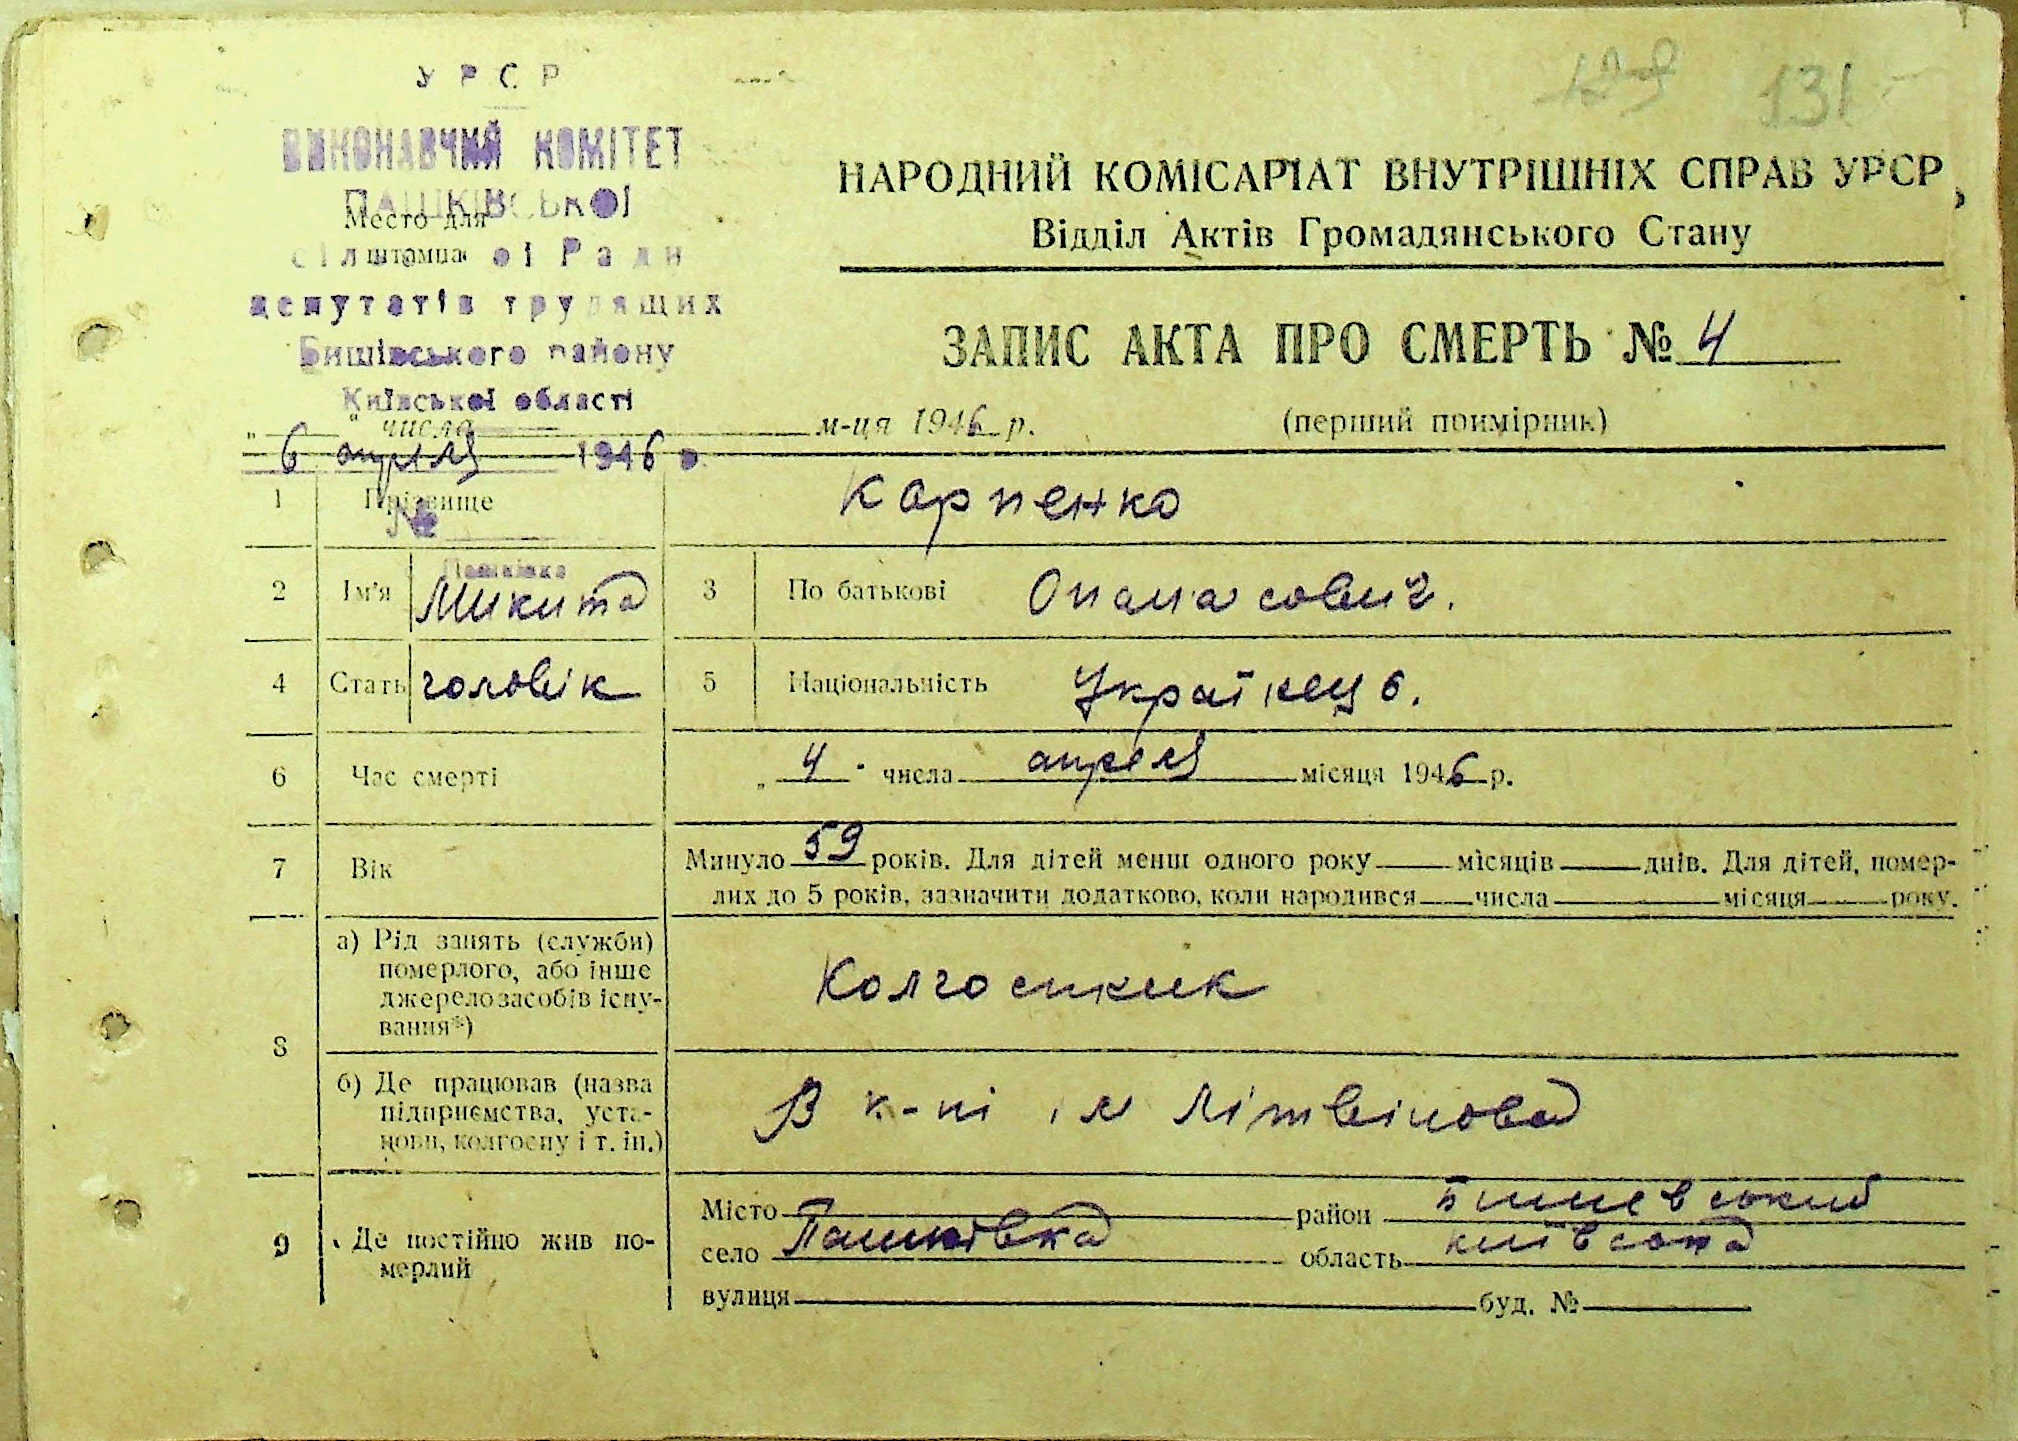 129 131
УРСР
ВИКОНАВЧИЙ КОМІТЕТ
ПАШКІВСЬКОЇ
Место для
штампа
сільської Ради
депутатів трудящих
Бишівського району
Київської області
„ “ числа м-ця 1946 р.
6 апреля 1946 р.
№
Пашківка
НАРОДНИЙ КОМІСАРІАТ ВНУТРІШНІХ СПРАВ УРСР
Відділ Актів Громадянського Стану
ЗАПИС АКТА ПРО СМЕРТЬ № 4
(перший примірник)
1 Прізвище Карпенко
2 Ім'я Микита 3 По батькові Опанасович.
4 Стать чоловік 5 Національність Українець.
6 Час смерті „ 4 числа апреля місяця 1946 р.
7 Вік Минуло 59 років. Для дітей менш одного року місяців днів. Для дітей, помер-
лих до 5 років, зазначити додатково, коли народився числа місяця року.
8 а) Рід занять (служби)
померлого, або інше
джерело засобів існу-
вання*)
Колгоспник
б) Де працював (назва
підприємства, уста-
нови, колгоспу і т. ін.)
В к-пі ім Літвінова
9 Де постійно жив по-
мерлий
Місто район Бишевський
село Пашківка область київська
вулиця буд. №